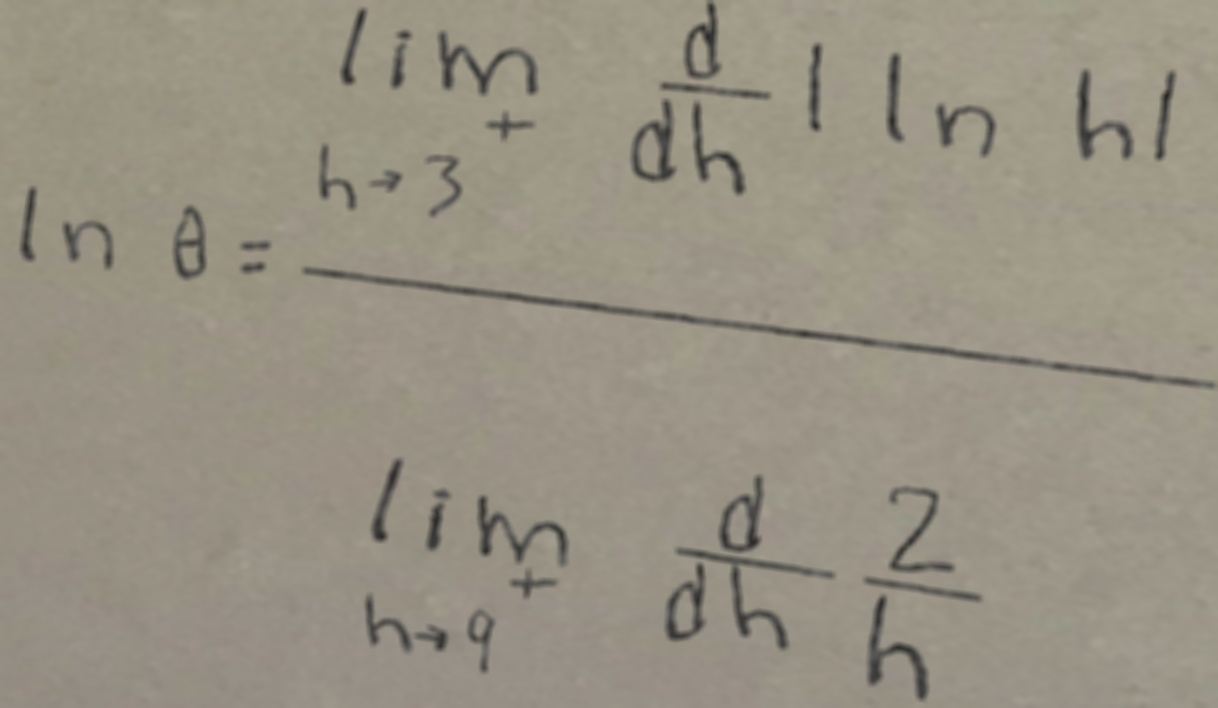 ln θ = lim h→3⁺ d/dh |ln h|
lim h→9⁺ d/dh 2/h